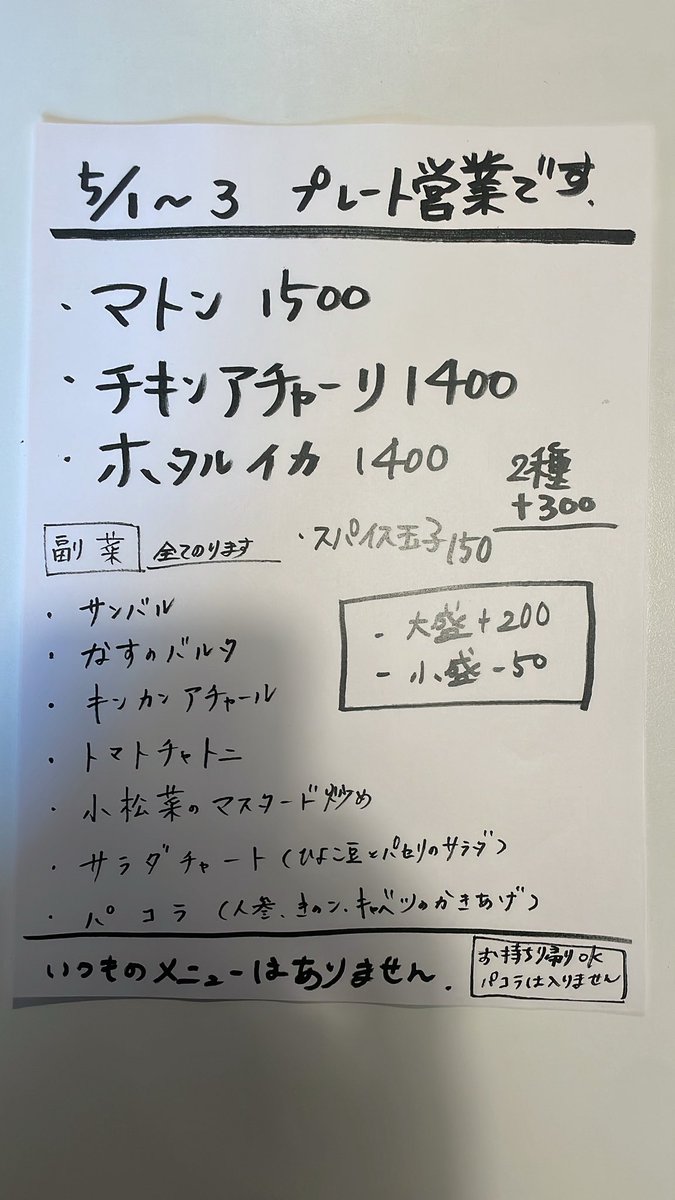 5/1～3 プレート営業です.
・マトン 1500
・チキンアチャーリ 1400
・ホタルイカ 1400
2種
+300
・スパイス玉子 150
副菜 全てのります
- 大盛+200
- 小盛-50
・サンバル
・なすのバルタ
・キンカンアチャール
・トマトチャトニ
・小松菜のマスタード炒め
・サラダチャート(ひよこ豆とパセリのサラダ)
・パコラ(人参、きのこ、キャベツのかきあげ)
いつものメニューはありません.
お持ち帰りOK
パコラは入りません